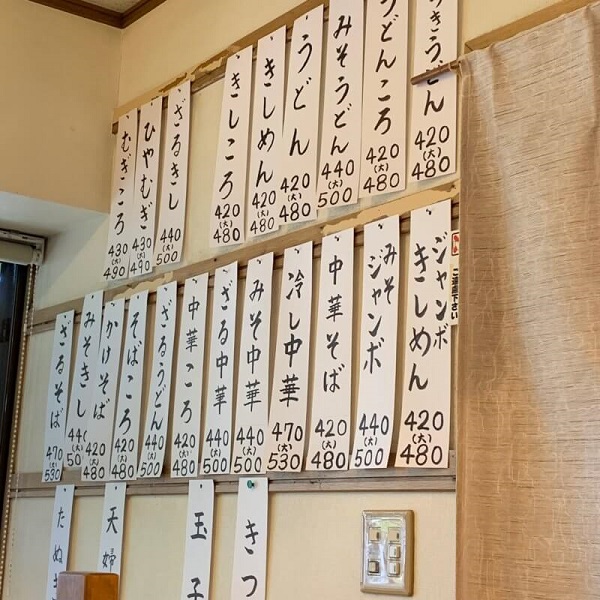 きうどん 420 (大) 480
うどんころ 420 (大) 480
みそうどん 440 (大) 500
うどん 420 (大) 480
きしめん 420 (大) 480
きしころ 420 (大) 480
ざるきし 440 (大) 500
ひやむぎ 430 (大) 490
むぎころ 430 (大) 490
ジャンボきしめん 420 (大) 480
みそジャンボ 440 (大) 500
中華そば 420 (大) 480
冷し中華 470 (大) 530
みそ中華 440 (大) 500
ざる中華 440 (大) 500
中華ころ 420 (大) 480
ざるうどん 440 (大) 500
そばころ 420 (大) 480
かけそば 420 (大) 480
みそきし 44 (大) 50
ざるそば 470 (大) 530
ご遠慮下さい
きつ
玉子
天婦
たぬき